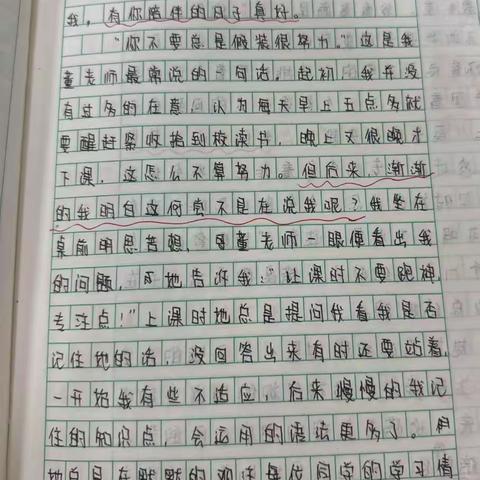 我，有你陪伴的日子真好。
“你不要总是假装很努力。”这是我
董老师最常说的一句话。起初，我并没
有过多的在意，认为每天早上五点多就
要醒赶紧收拾到校读书，晚上又很晚才
下课，这怎么不算努力。但后来，渐渐
的我明白这何尝不是在说我呢？我坐在
桌前明思苦想，董老师一眼便看出我
的问题，地告诉我：“让课时不要跑神，
专注点！”上课时她总是提问我看我是否
记住她的话，没回答出来有时还要站着，
一开始我有些不适应，后来慢慢的我记
住的知识点，会运用的语法更多了。
她总是在默默的观注每位同学的学习情